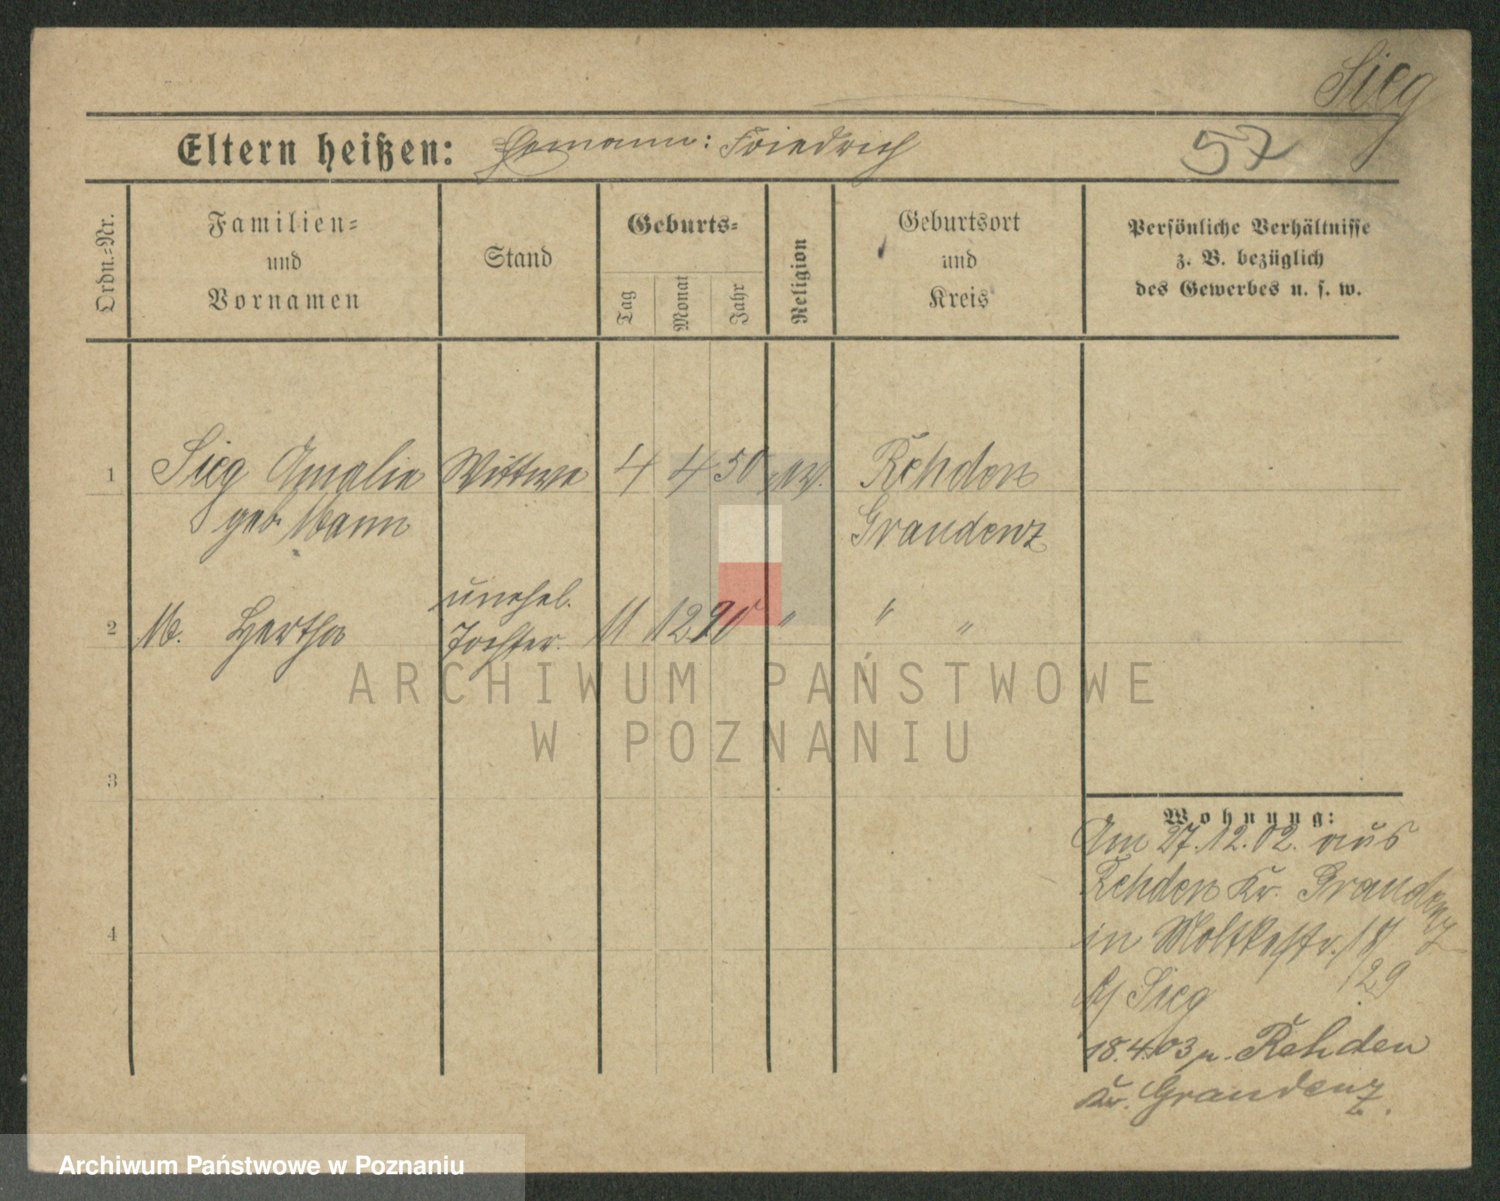 Sieg
57
Eltern heißen: Hermann: Friedrich
Ordn.-Nr.
Familien- und Vornamen
Stand
Geburts-
Tag
Monat
Jahr
Religion
Geburtsort und Kreis
Persönliche Verhältnisse
z. B. bezüglich
des Gewerbes u. s. w.
1 Sieg Amalie Wittwe 4 4 50 ev. Rehden
geb. Mann Graudenz
unehel.
2 M. Hertha Tochter. 11 12 90 " " "
3
4
Wohnung:
Am 27.12.02. aus
Rehden Kr. Graudenz
in Moltkestr. 18
129
b/ Sieg
18.4.03 n. Rehden
Kr. Graudenz.
ARCHIWUM PAŃSTWOWE
W POZNANIU
Archiwum Państwowe w Poznaniu